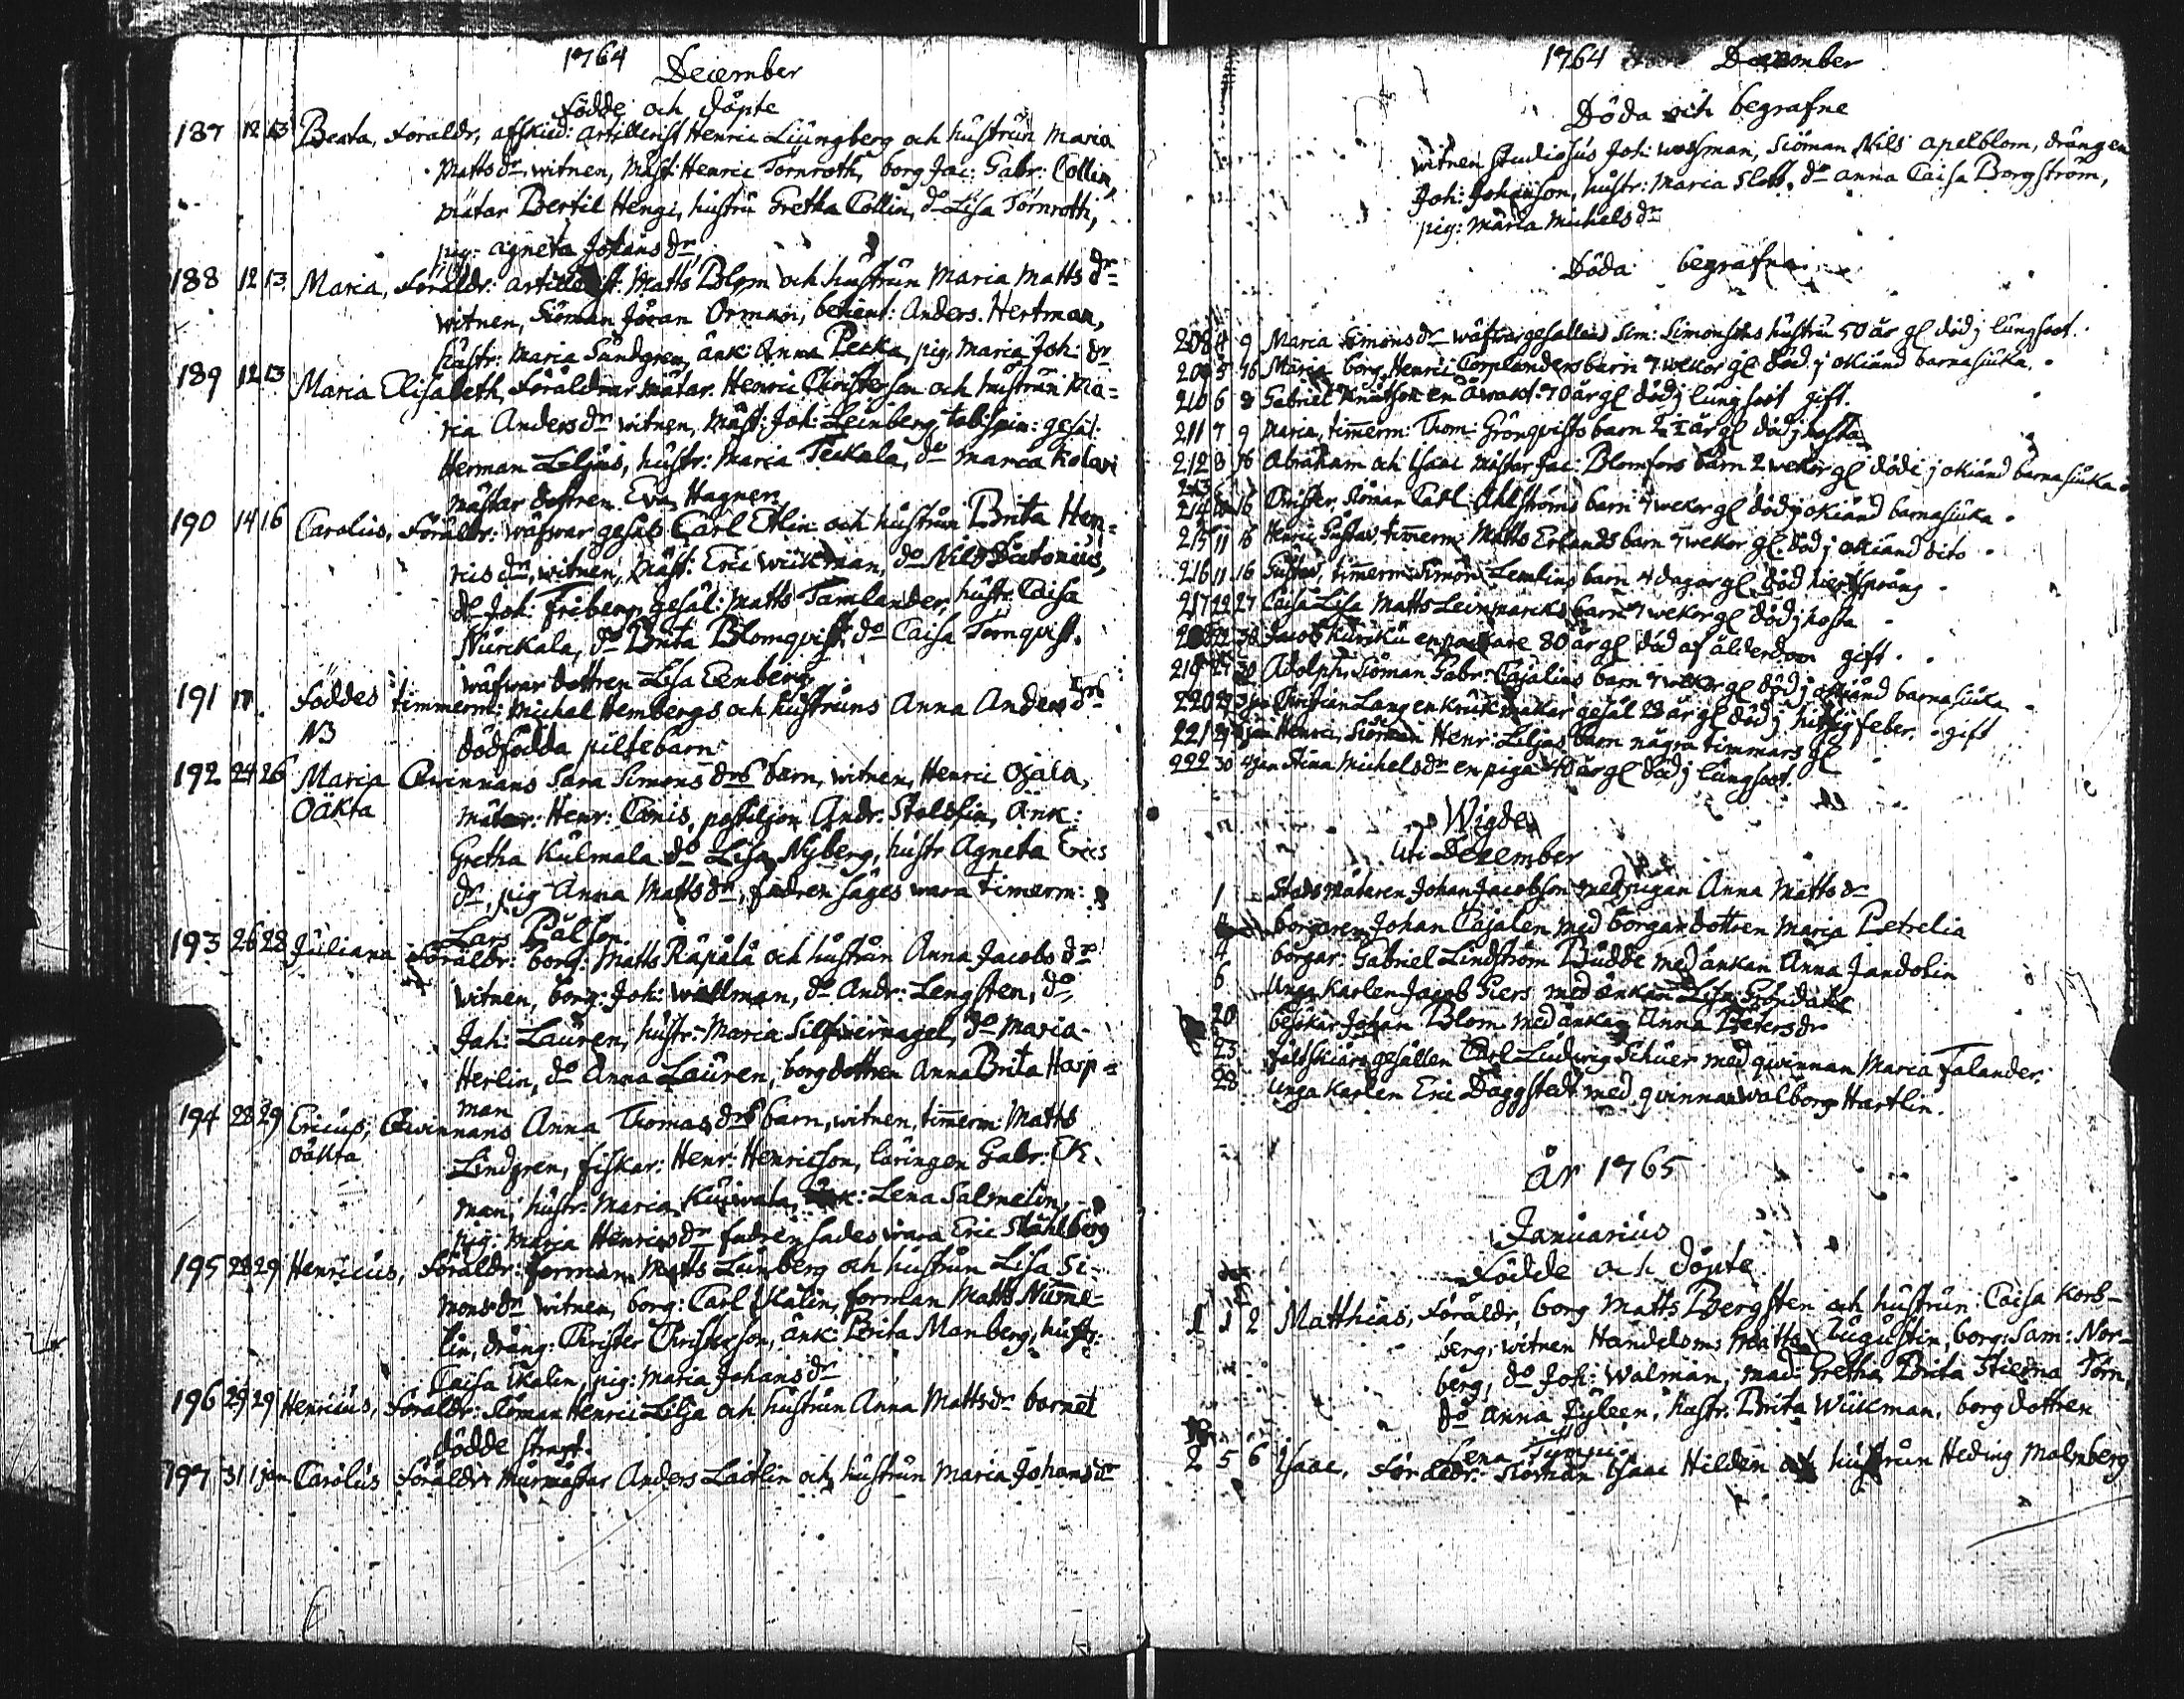 1764
December
Födde och döpte
187 12 13 Beata, Föräldr, afskied: artillerist Henric Liüngberg och hüstrün Maria
Matts dr. witnen, Mäst: Henric Törnroth, borg Jac: Gabr: Collin,
mätar Bertil Hengi, hüstrü Gretha Collin, do Lisa Törnroth,
pig: agneta Johans dr,
188 12 13 Maria, Föräldr: artillerist: Matts Blom och hüstrün Maria Matts dr
witnen, Siöman Jöran Orman, betient: Anders Hertman,
hüstr: Maria Sündgren, änk: Anna Pecka, pig: Maria Joh: dr
189 12 13 Maria Elisabeth, Föräldrar mätar Henric Christerson och hüstrün Ma=
ria Anders dr witnen, Mäst: Joh: Leinberg, tob: spin: gesäl:
Herman Liljus, hüstr: Maria Teckala, do Maria Kolari
mästar dottren Eva Hagner.
190 14 16 Carolus, Föräldr: wäfwar gesäl Carl Etlin och hüstrün Brita Hen=
rics dr, witnen, Mäst: Eric Wiikman, do Nils
do Joh: Friberg, gesäl: Matts Tamlander, hüstr: Caisa
Nürckala, do Brita Blomqvist, do Caisa Törnqvist,
wäfwar dottren Lisa Eenberg
191 17 Föddes timmerm: Michel Hembergs och hüstrüns Anna Anders drs
NB dödfödda piltebarn
192 24 26 Maria Qwinnans Sara Simons drs barn, witnen, Henric Ojala,
Oäkta mätar: Henr: Tanis, postiljon Andr: Staldfin, Änk:
Gretha Külmala do Lisa Nyberg, hüstr Agneta Erics
dr, pig Anna Matts dr, fadren säges wara timerm:
Lars Pålson.
193 26 28 Jüliana Föräldr: borg: Matts Räpälä och hüstrün Anna Jacobs dr
witnen, borg: Joh: Wallman, do Andr: Lengsten, do
Joh: Lauren, hüstr: Maria Silfwernagel, do Maria
Herlin, do Anna Lauren, borg dottren Anna Brita Hasp=
man
194 28 29 Ericus, Qwinnans Anna Thomas drs barn, witnen, timerm: Matts
oäkta Lindgren, fiskar: Henr: Henricson, läringen Gabr: Ek=
man, hüstr: Maria Küiwala, änk: Lena Salmelin,
pig: Maria Henrics dr fadren sades wara Eric Stählberg
195 28 29 Henricus, Föräldr: forman Matts Lünberg och hüstrün Lisa Si=
mons dr witnen, borg: Carl Ikalin, forman Matts Nüme=
lin, dräng: Christer Christerson, änk: Brita Manberg, hüstr:
Caisa Ikalin, pig: Maria Johans dr
196 29 29 Henricus, Föräldr: Siöman Henric Lilja och hüstrün Anna Matts dr barnet
dödde strax.
197 31 1 jan Carolus Föräldr Mürmästar Anders Laitlin och hüstrün Maria Johans dr
1764 December
Döda och begrafne
witnen Studiosus Joh: Wassman, Siöman Nils Apelblom, drängen
Joh: Johanson, hüstr: Maria Slott, do Anna Caisa Borgström,
pig: Maria Michels dr
Döda begrafna
208 4 9 Maria Simons dr wäfwargesällens Sim: Simonsons hüstrü 50 år gl död j lüngsoot.
209 5 16 Maria borg Henric Törplanders barn 7 wekor gl död j okiänd barnasiüka.
210 6 8 Gabriel Knutson en 70 år gl död j lüngsoot gift.
211 7 9 Maria, timmerm: Thom: Grönqvists barn 2 år gl död j hosta
212 8 16 Abraham och Isaac mästar Jac: Blomfors barn 2 wekor gl döde j okiänd barnasiüka.
213
214 16 Christer, Siöman Carl Ahlströms barn 7 wekor gl död j okiänd barnasiüka.
215 11 16 Henric Güstav, timmerm: Matts Erlands barn 7 wekor gl. död j okiänd dito.
216 11 16 Güstav, timmerm: Simon Lemlins barn 4 dagar gl död hiertsprång.
217 22 27 Caisa Lisa Matts Leinmarcks barn 7 wekor gl död j hosta
218 22 30 Jacob Kürikü en packare 80 år gl död af ålderdom gift.
219 27 30 Adolph, Siöman Gabr: Cajalins barn 7 wekor gl död j okiänd barnasiüka.
220 Christian Lang en krükmakar gesäl 28 år gl död j hitzig feber. gift
221 29 jan Henric, Siöman Henr: Liljas barn några timmars gl
222 30 4 jan Stina Michels dr en piga 40 år gl död j lüngsoot.
Wigde
uti December
1 Stads mätaren Johan Jacobson med pigan Anna Matts dr
borgaren Johan Cajalen med borgar dottren Maria Petrelia
4 borgar: Gabriel Lindström Büdde med änkan Anna Jandolin
6 Unga Karlen Jacob Siers med änkan Lisa Gröndahl
20 besökar Johan Blom med änkan Anna Peters dr
23 fältskiärs gesällen Carl Lüdwig Schüer med qwinnan Maria Falander.
28 Unga Karlen Eric Däggstedt med qwinnan Walborg Hartlin.
År 1765
Januarius
Födde och döpte
1 1 2 Matthias, Föräldr, borg Matts Bergsten och hüstrün Caisa Korb=
berg, witnen Handelsm: Matts Augustin, borg: Sam: Nor=
berg, do Joh: Walman, mad: Gretha Brita Stierna Törn,
do Anna Tyleen, hüstr. Brita Wiikman, borg dottren
Lena
2 5 6 Isaac, Föräldr: Siöman Isaac Hilden och hüstrün Hedvig Malmberg